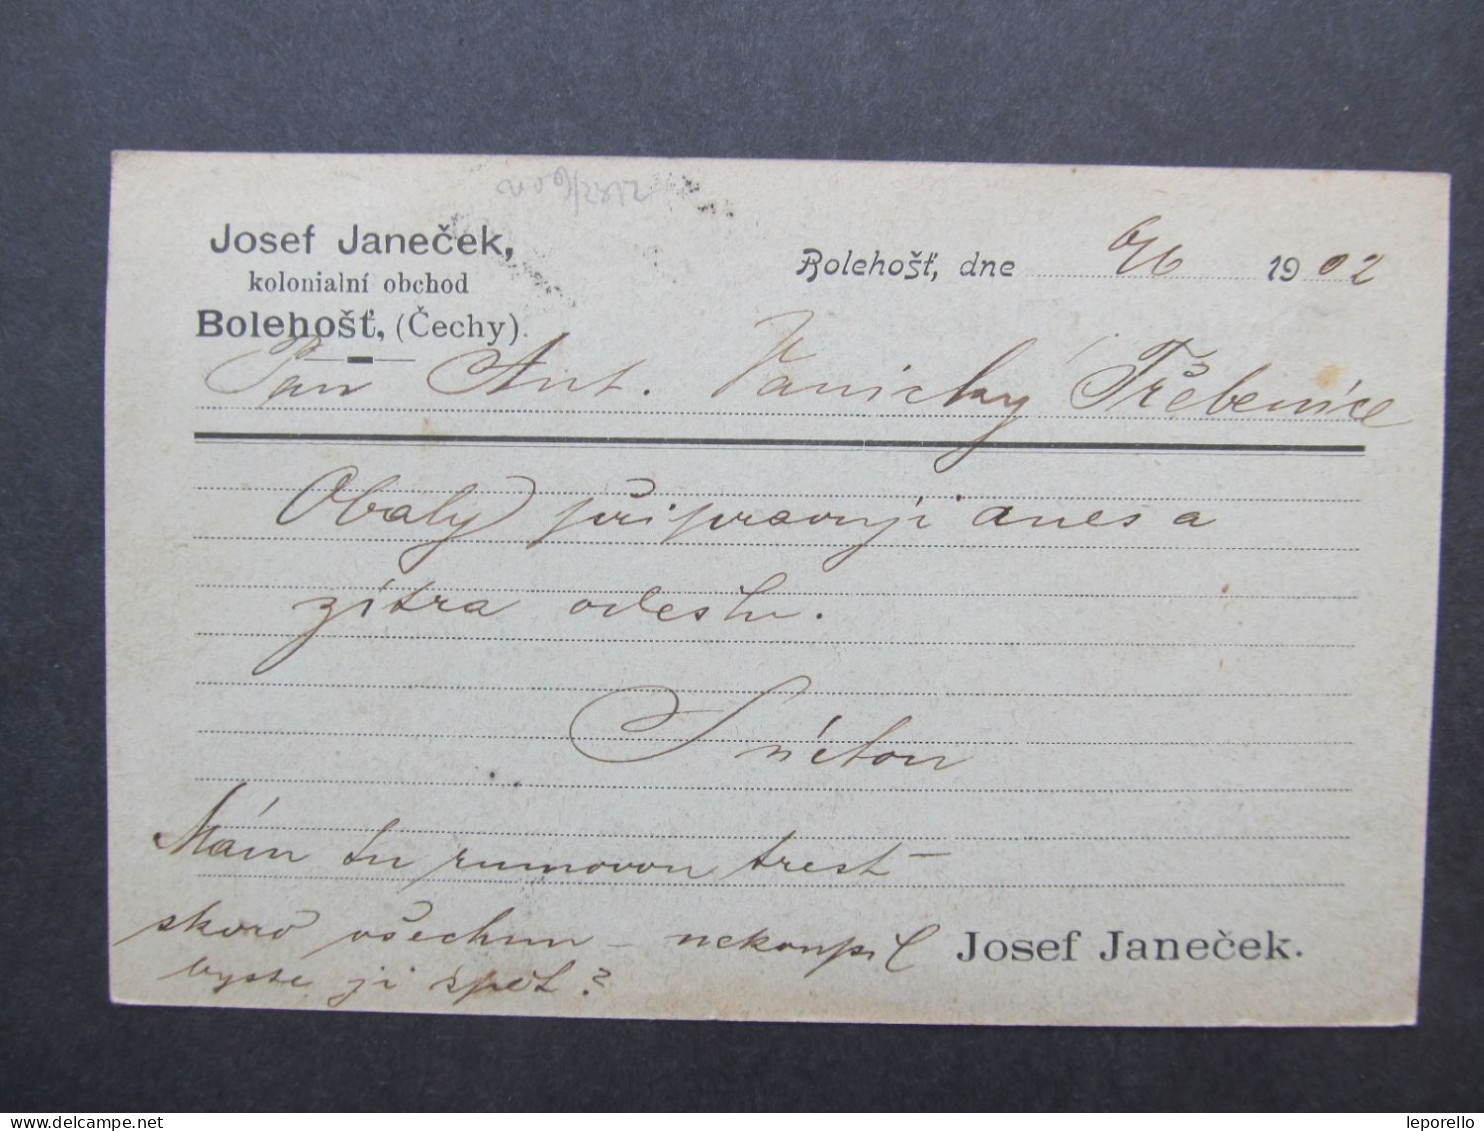 Josef Janeček,
kolonialní obchod
Bolehošť, (Čechy).
Bolehošť, dne 6/6 1902
Pan Ant. Vanický Třebenice
Obaly připravuji dnes a
zítra odešlu.
S úctou
Mám tu rumovou trest –
skoro všechnu – nekoupil
byste ji zpět?
Josef Janeček.
leporello